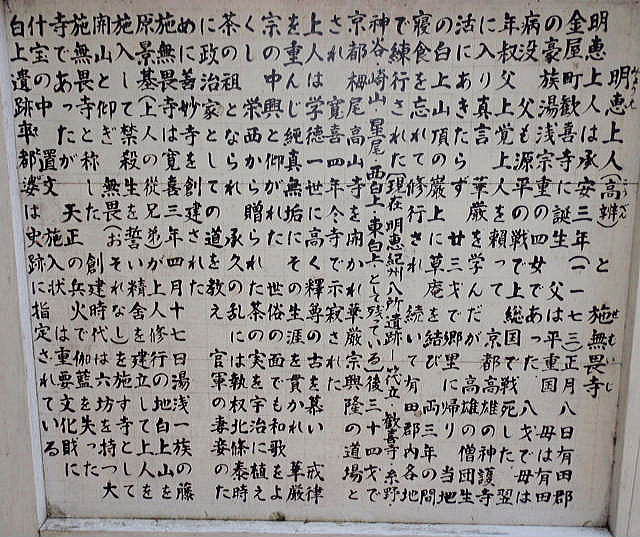 明恵上人(高辨)と 施無畏寺
明恵上人は承安三年(一一七三)正月八日有田郡
金屋町歓喜寺に誕生 父は平重国 母は有田
の豪族湯浅宗重の四女であった 八才で母は
病没 父も源平の戦で上総国で戦死した 翌
年叔父上覚上人を頼って 京都高雄の神護寺
に入り真言 華厳を学んだが 高雄の僧団生
活にあきたらず 廿三才で郷里に帰り 当地
の白上山頂の巌上に草庵を結び 両三年の間
寝食を忘れて修行され 続いて有田郡内各地
で練行された(現在 明恵紀州八所遺跡―筏立 歓喜寺 糸野
神谷 崎山 星尾 西白上・東白上―として残っている)後三十四才で
京都栂尾高山寺を開かれ華厳宗興隆の道場と
され 寛喜四年今寺で示寂された
上人は学徳一世に高く釈尊の古を慕い 戒律
を重んじ純真無垢にその生涯を貫かれ 華厳
宗の中興と仰がれた 世俗の面でも和歌をよ
くし 栄西から贈られた茶の実を宇治に植え
茶の祖となられ 承久の乱には執権北條泰時
に政治家としての道を教え 官軍の妻妾のた
めに善妙寺を創建された
施無畏寺は寛喜三年四月十七日湯浅一族の藤
原景基(上人の従兄弟)が上人修行の地白上山を
施入して禁殺生(お誓い)の精舎を建立し 上人を
開山と仰ぎ 無畏(おそれなし)を施す寺として
施無畏寺と称した 創建時代は六坊を持つ大
寺であったが 天正の兵火で
什宝の中 置文 施入状は重要文化財に
白上遺跡率都婆は史跡に指定されている